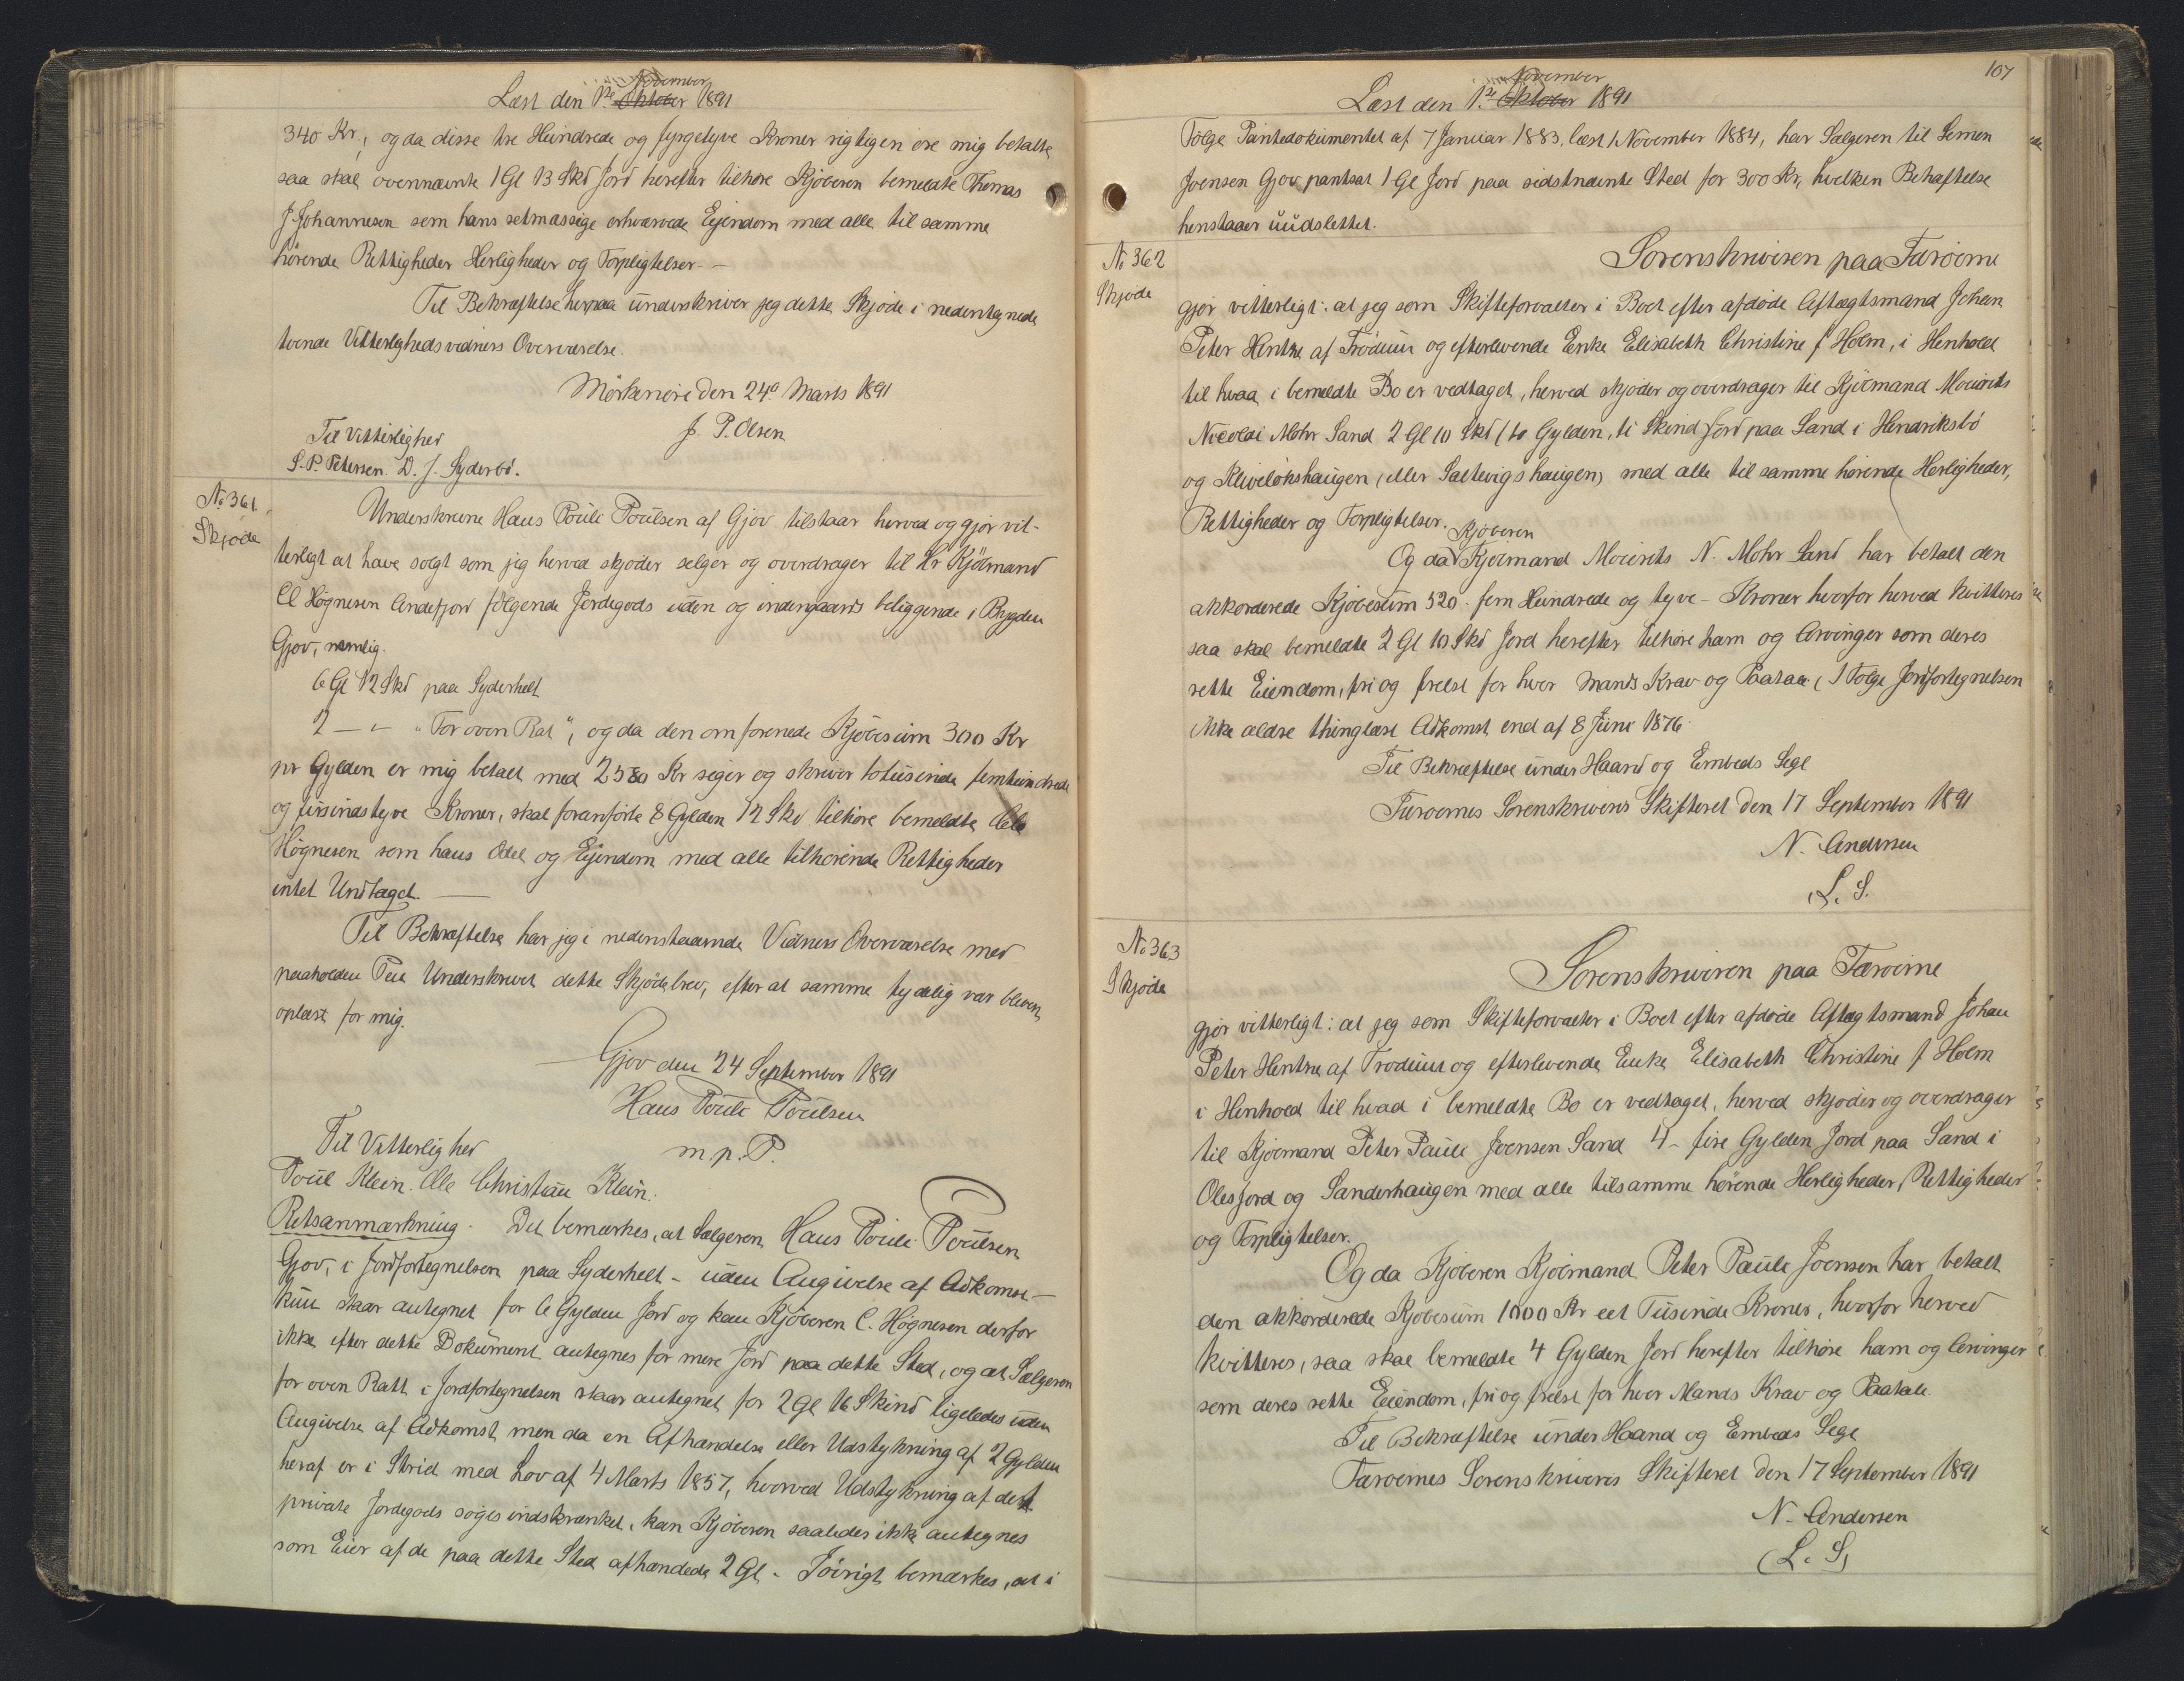 November
Læst den 1ste Oktober 1891
340 Kr., og da disse tre Hundrede og fyrgetyve Kroner rigtigen ere mig betalte,
saa skal ovennævnte 1 Gl 13 Skd Jord herefter tilhøre Kjøberen bemeldte Thomas
J. Johannesen som hans retmæssige erhvervede Ejendom med alle til samme
hørende Rettigheder Herligheder og Forpligtelser. —
Til Bekræftelse herpaa underskriver jeg dette Skjøde i nedentegnede
tvende Vitterlighedsvidners Overværelse.
Mörkenöre den 24de Marts 1891
J. P. Olsen
Til Vitterlighed
S. P. Petersen. D. J. Syderbö.
No 361.
Skjøde
Underskrevne Hans Pouli Poulsen af Gjov tilstaar herved og gjør vit-
terligt at have solgt som jeg herved skjøder sælger og overdrager til Hr Kjömand
Cl Högnesen Andefjord følgende Jordegods uden og indengaards beliggende i Bygden
Gjov, nemlig.
6 Gl 12 Skd paa Syderhelt
2 — " — "For oven Rat", og da den omforenede Kjøbesum 300 Kr
pr Gylden er mig betalt med 2580 Kr siger og skriver totusinde femhundrede
og firsindstyve Kroner, skal foranførte 8 Gylden 12 Skd tilhøre bemeldte Cl
Högnesen som hans Odel og Ejendom med alle tilhørende Rettigheder
intet Undtaget. —
Til Bekræftelse har jeg i nedenstaaende Vidners Overværelse med
paaholden Pen Underskrevet dette Skjødebrev, efter at samme tydelig var bleven
oplæst for mig.
Gjov den 24 September 1891
Hans Pouli Poulsen
m. p. P.
Til Vitterlighed
Poul Klein. Ole Christian Klein.
Retsanmærkning. Det bemærkes, at Sælgeren Hans Pouli Poulsen
Gjov, i Jordfortegnelsen paa Syderhelt – uden Angivelse af Adkomst –
kun staar antegnet for 6 Gylden Jord og kan Kjøberen C. Högnesen derfor
ikke efter dette Dokument antegnes for mere Jord paa dette Sted, og at Sælgeren
for oven Ratt i Jordfortegnelsen staar antegnet for 2 Gl 16 Skind ligeledes uden
Angivelse af Adkomst, men da en Afhændelse eller Udstykning af 2 Gylden
heraf er i Strid med Lov af 4 Marts 1857, hvorved Udstykning af det
private Jordegods søges indskrænket, kan Kjøberen saaledes ikke antegnes
som Eier af de paa dette Sted afhændede 2 Gl. – Iøvrigt bemærkes, at i
107
November
Læst den 1ste Oktober 1891
Følge Pantedokumentet af 7 Januar 1883, læst 1 November 1884, har Sælgeren til Semen
Joensen Gjov pantsat 1 Gl Jord paa sidstnævnte Sted for 300 Kr, hvilken Behæftelse
henstaaer uudslettet.
No 362
Skjøde
Sorenskriveren paa Færøerne
gjør vitterligt: at jeg som Skifteforvalter i Boet efter afdøde Aftægtsmand Johan
Peter Hentze af Trödum og efterlevende Enke Elisabeth Christine f Holm, i Henhold
til hvad i bemeldte Bo er vedtaget, herved skjøder og overdrager til Kjømand Mouritz
Nicolai Mohr Sand 2 Gl 10 Skd (to Gylden, ti Skind Jord paa Sand i Hendriksbö
og Klivelökshaugen (eller Saltevigshaugen) med alle til samme hørende Herligheder,
Rettigheder og Forpligtelser.
Kjøberen
Og da Kjømand Mouritz N. Mohr Sand har betalt den
akkorderede Kjøbesum 520 – fem Hundrede og tyve – Kroner hvorfor herved kvitteres
saa skal bemeldte 2 Gl 10 Skd Jord herefter tilhøre ham og Arvinger som deres
rette Eiendom, fri og frelst for hver Mands Krav og Paatale (I Følge Jordfortegnelsen
ikke ældre thinglæst Adkomst end af 8 Juni 1876.
Til Bekræftelse under Haand og Embeds Segl
Færoernes Sorenskriveris Skifteret den 17 September 1891
N. Andersen
(L. S.
No 363
Skjøde
Sorenskriveren paa Færøerne
gjør vitterligt: at jeg som Skifteforvalter i Boet efter afdøde Aftægtsmand Johan
Peter Hentze af Trodum og efterlevende Enke Elisabeth Christine f Holm
i Henhold til hvad i bemeldte Bo er vedtaget, herved skjøder og overdrager
til Kjømand Peter Pauli Joensen Sand 4 – fire Gylden Jord paa Sand i
Olesjord og Sanderhaugen med alle tilsamme hørende Herligheder, Rettigheder
og Forpligtelser.
Og da Kjøberen Kjømand Peter Pauli Joensen har betalt
den akkorderede Kjøbesum 1000 Kr eet Tusinde Kroner, hvorfor herved
kvitteres, saa skal bemeldte 4 Gylden Jord herefter tilhøre ham og Arvinger
som deres rette Eiendom, fri og frelst for hver Mands Krav og Paatale.
Til Bekræftelse under Haand og Embeds Segl
Færøernes Sorenskriveris Skifteret den 17 September 1891
N. Andersen
(L. S)